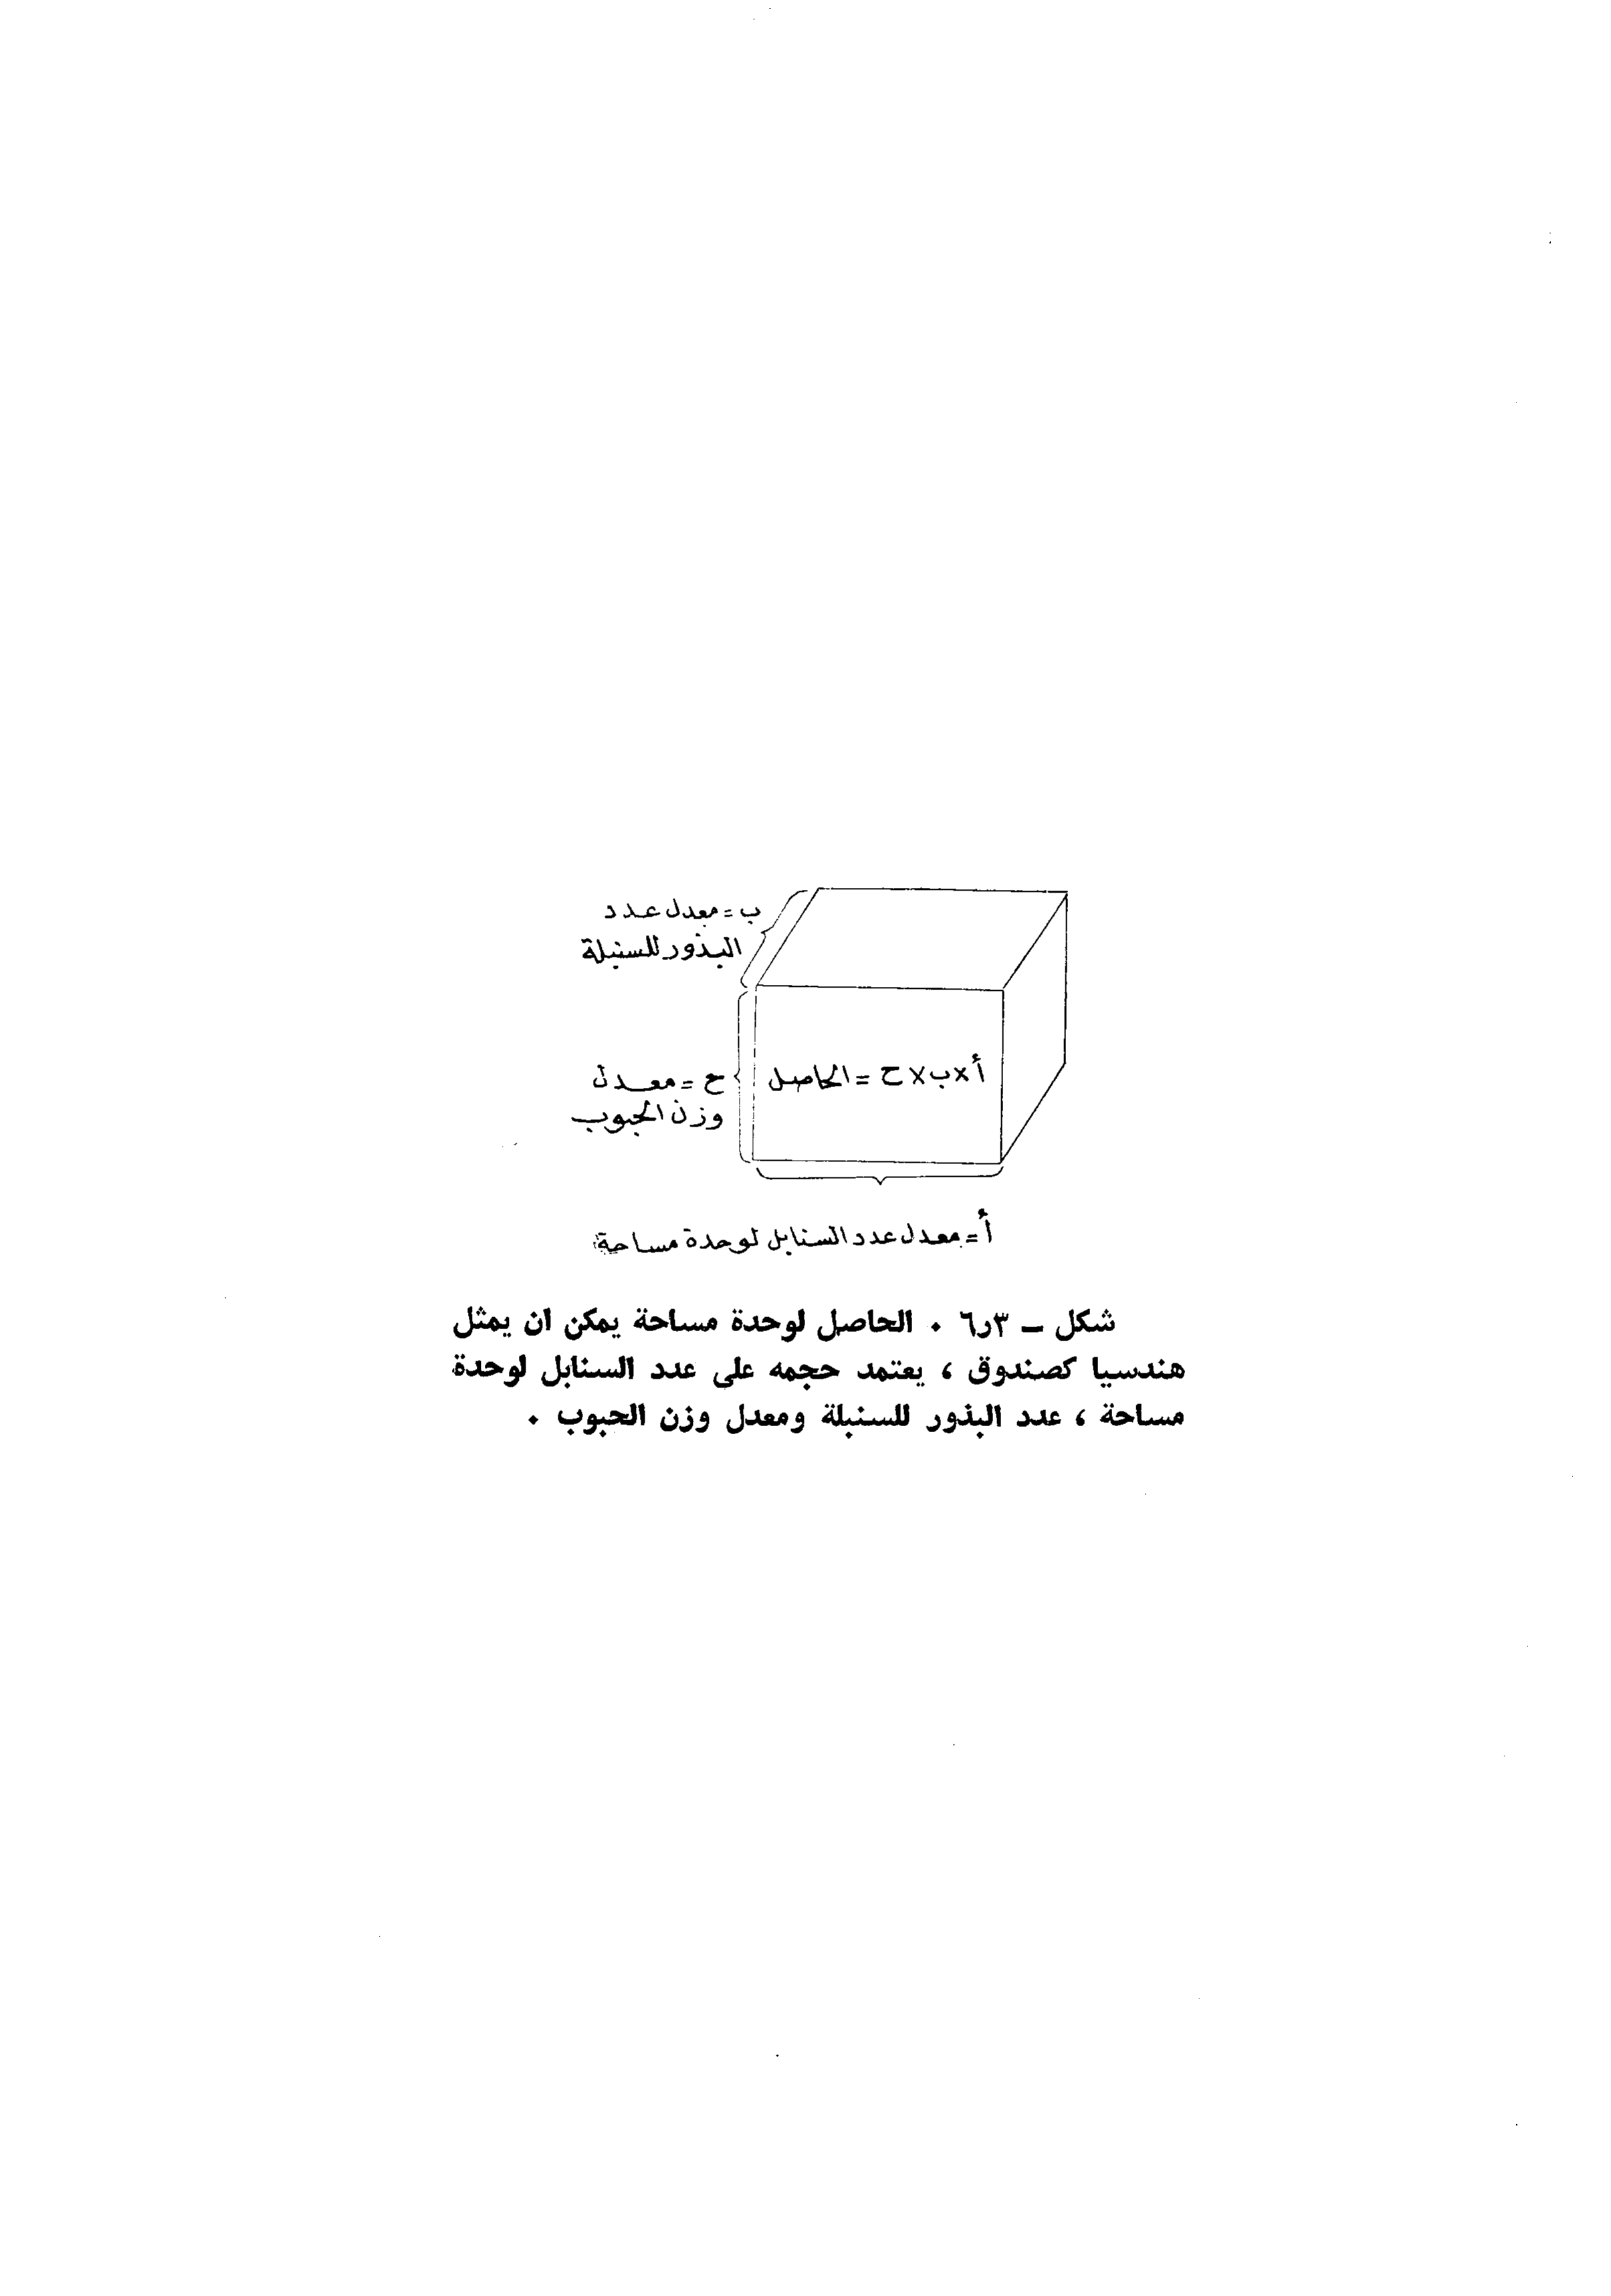 ب = معدل عدد
البذور للسنبلة
أ × ب × ح = الحاصل
ح = معدل
وزن الحبوب
أ = معدل عدد السنابل لوحدة مساحة
شكل – ٣ر٦ ٠ الحاصل لوحدة مساحة يمكن ان يمثل
هندسيا كصندوق ، يعتمد حجمه على عدد السنابل لوحدة
مساحة ، عدد البذور للسنبلة ومعدل وزن الحبوب ٠